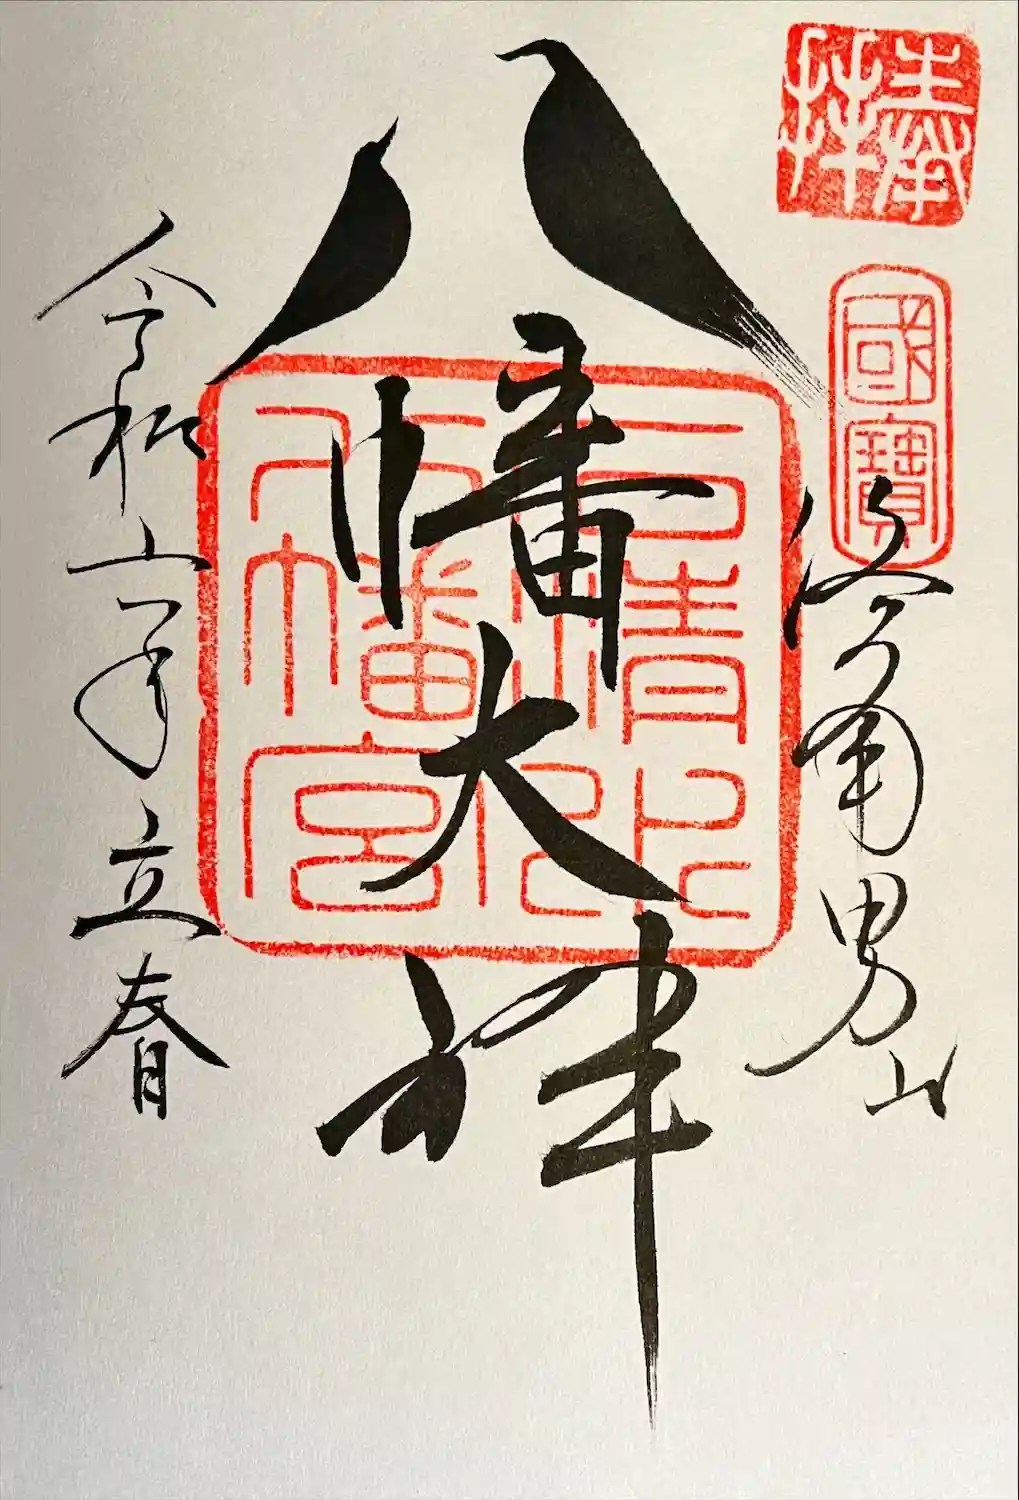 奉拝
國寶
洛南男山
八幡大神
石清水
八幡宮
令和六年立春